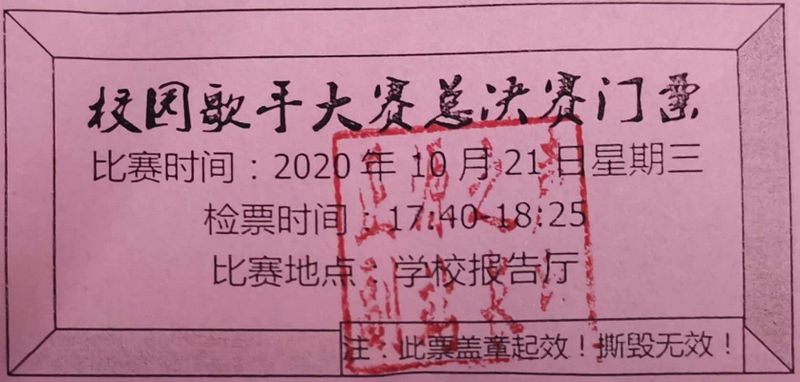 校园歌手大赛总决赛门票
比赛时间：2020年10月21日星期三
检票时间：17:40-18:25
比赛地点：学校报告厅
注：此票盖章起效！撕毁无效！